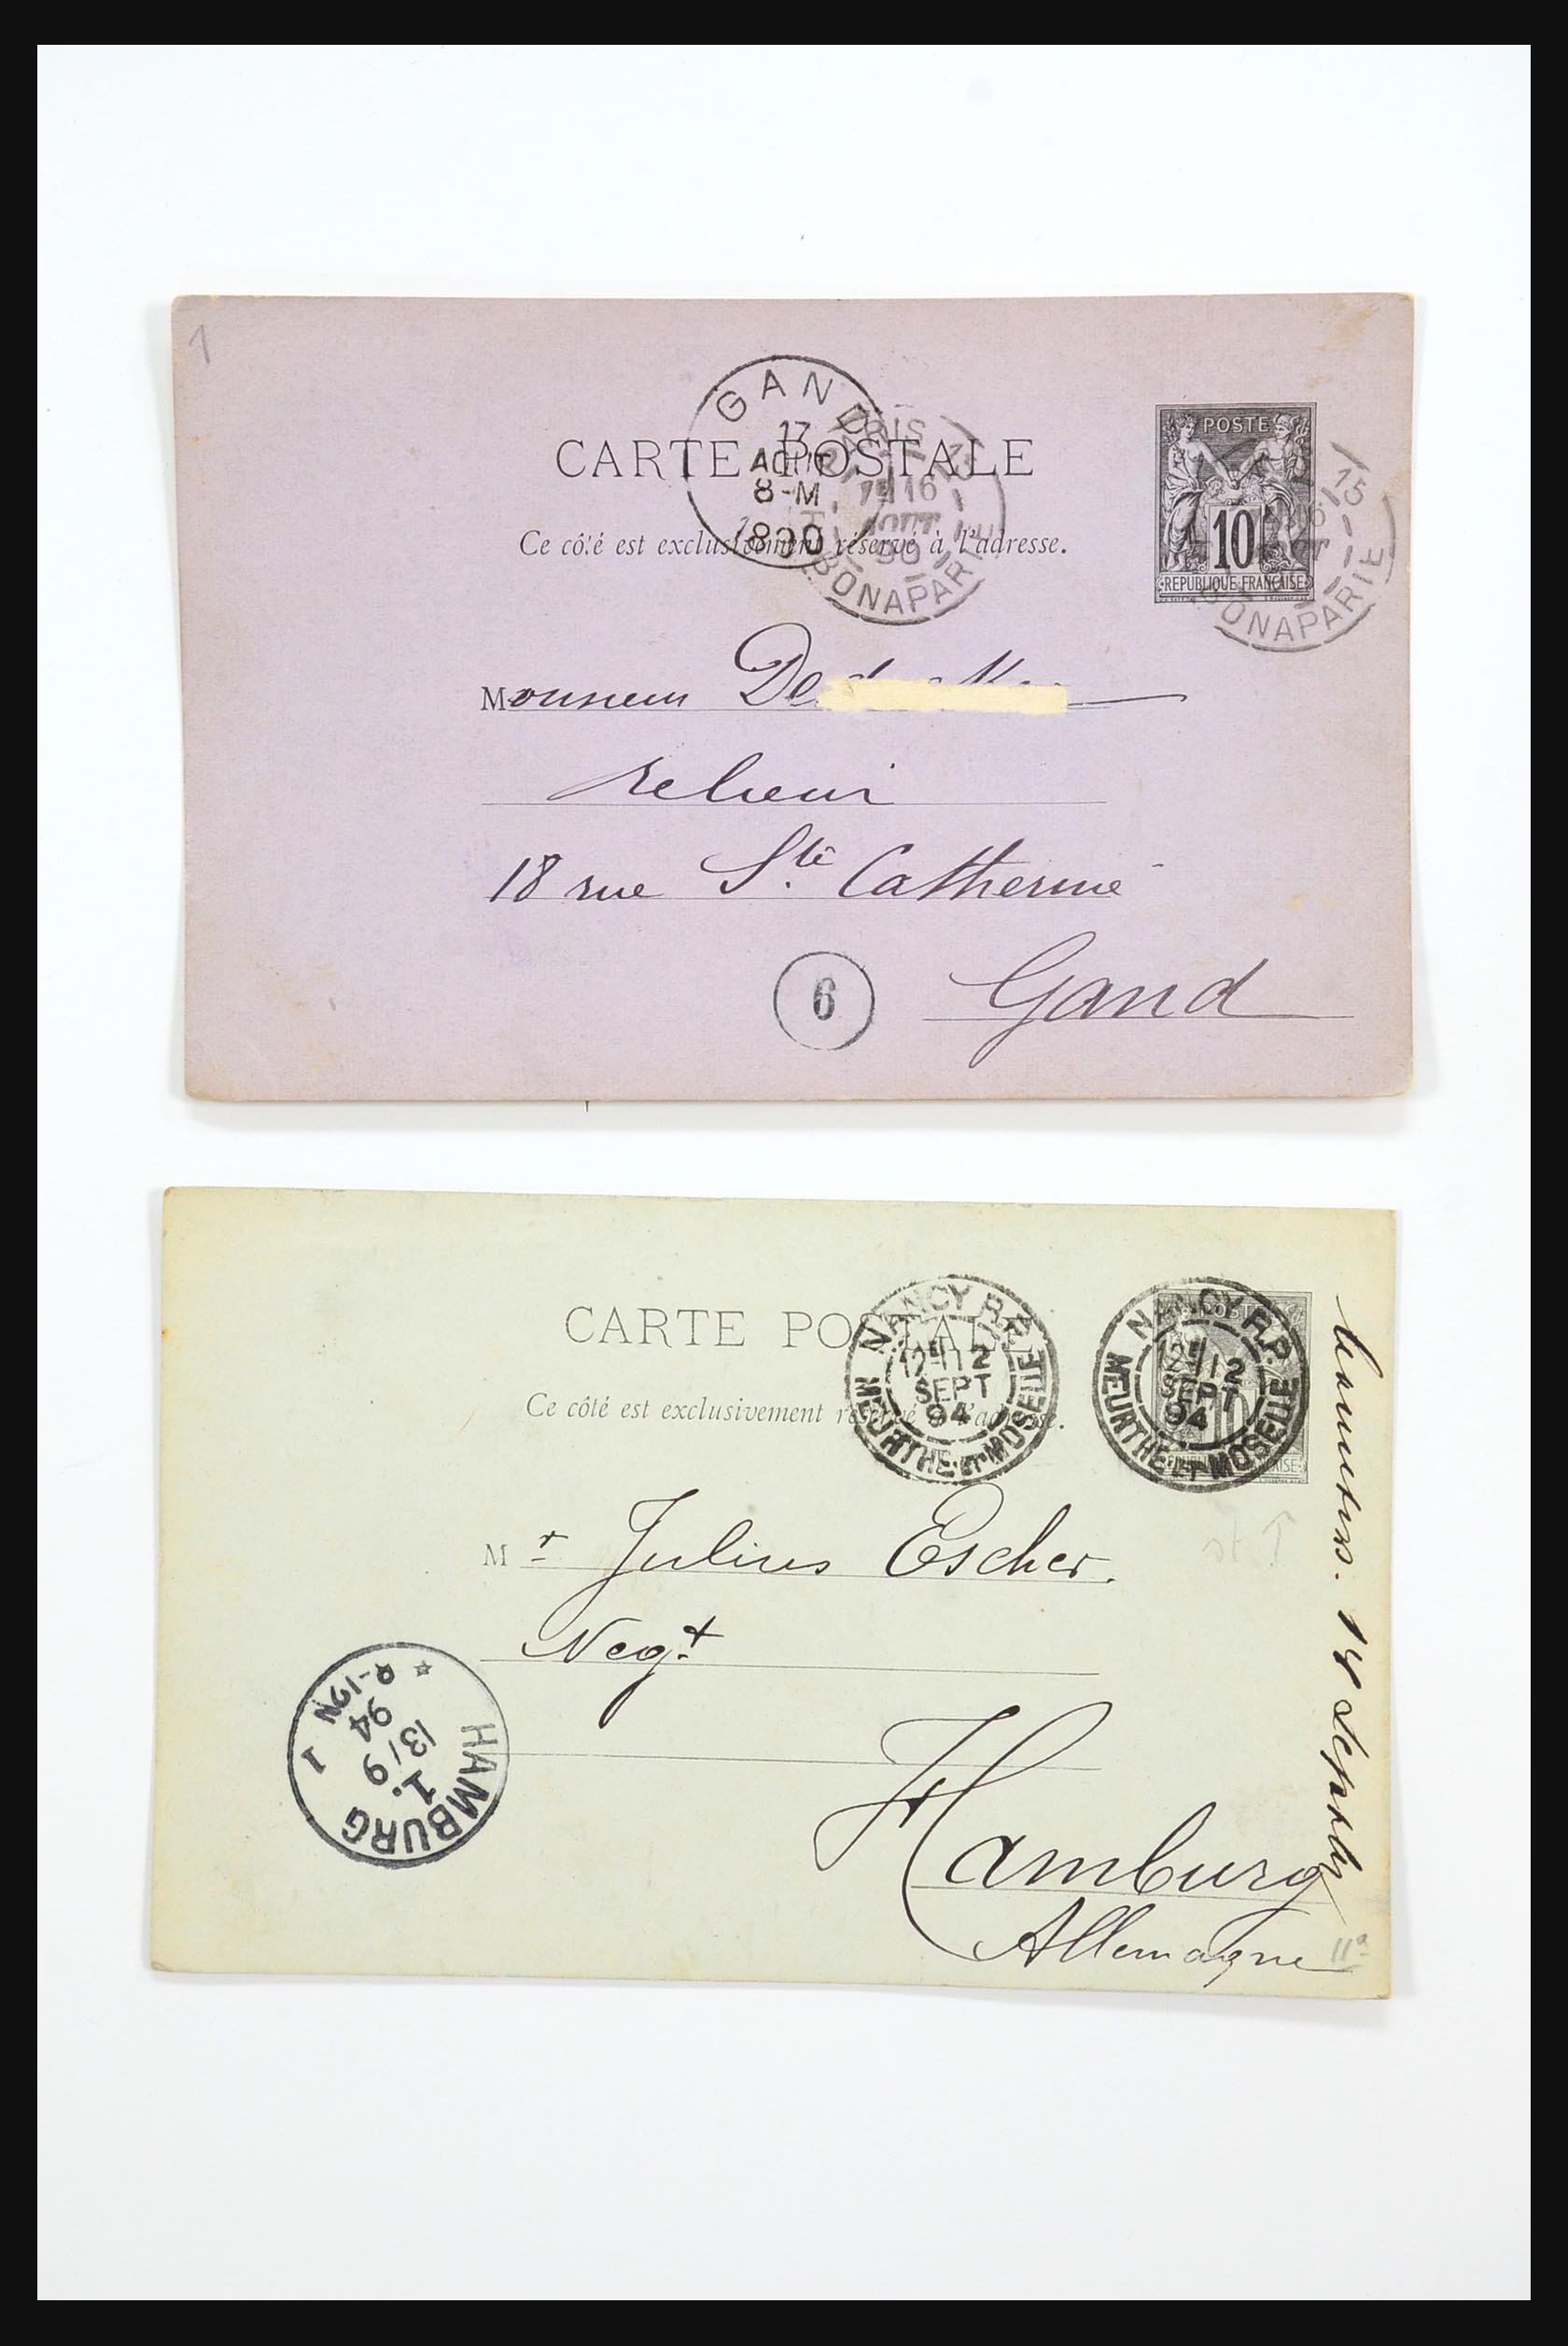 1
GAND
17
AOUT
8-M
1890
PARIS 15
16
AOUT
90
BONAPARTE
CARTE POSTALE
POSTE
10
REPUBLIQUE FRANÇAISE
15
BONAPARTE
Ce côté est exclusivement réservé à l'adresse.
Monsieur De
relieur
18 rue Ste Catherine
6
Gand
CARTE POSTALE
NANCY R.P.
12
SEPT
94
MEURTHE-ET-MOSELLE
NANCY R.P.
12
SEPT
94
MEURTHE-ET-MOSELLE
Ce côté est exclusivement réservé à l'adresse.
Mr Julius Escher.
Negt
Hamburg
Allemagne
HAMBURG
1.
13/9
94
1
IIa